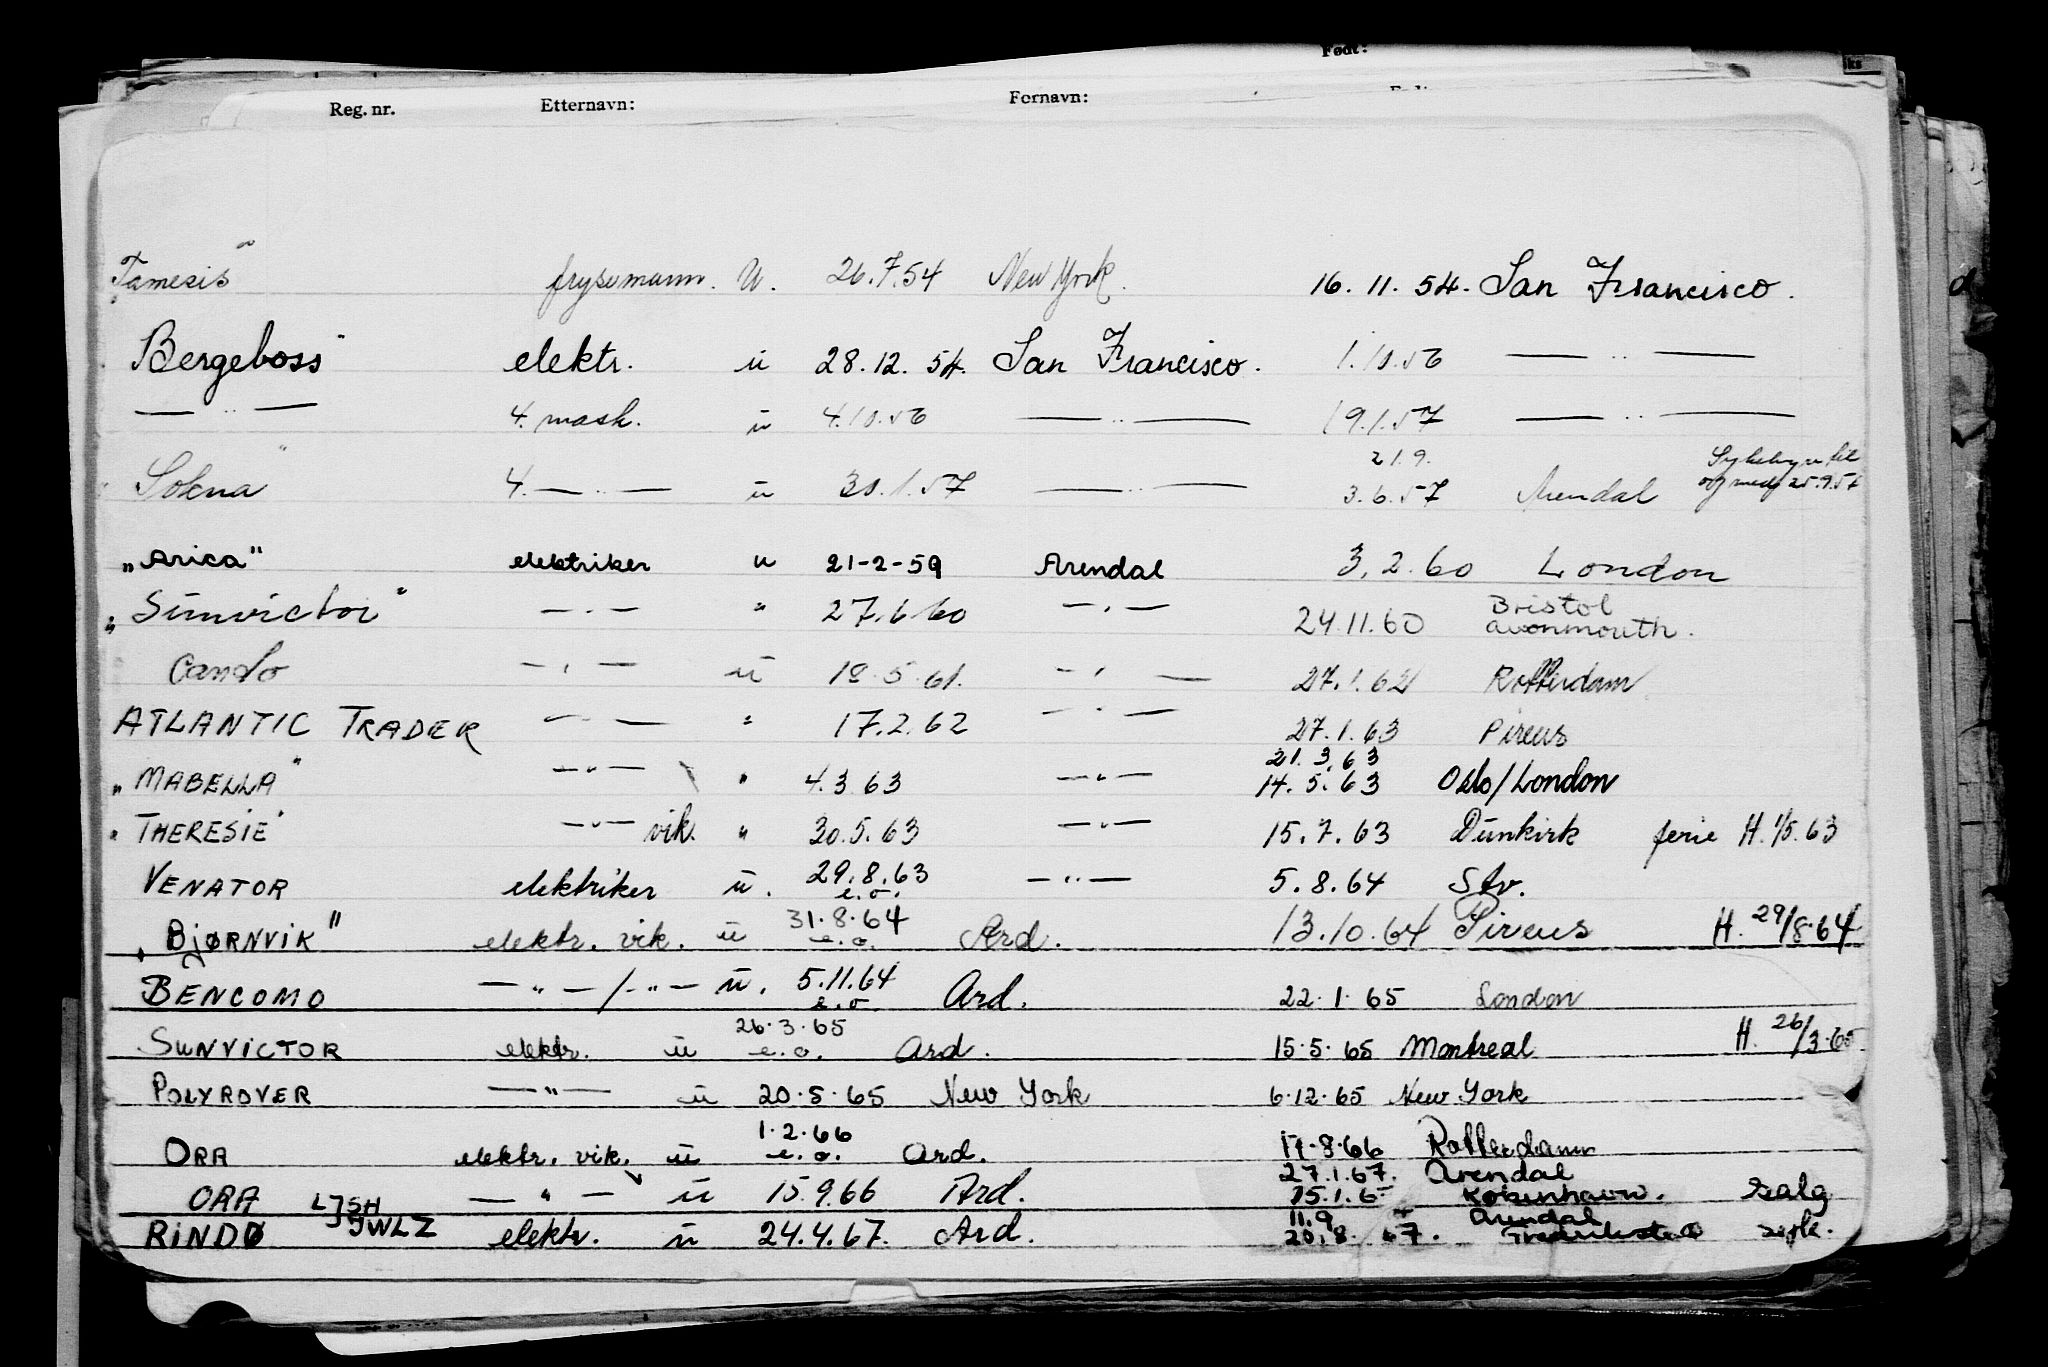 Født:
Reg. nr. Etternavn: Fornavn:
"Tamesis" frysemann. u. 26.7.54 New York. 16.11.54. San Francisco.
Bergeboss" elektr. u 28.12.54. San Francisco. 1.10.56 — " —
— " — 4. mask. u 4.10.56 — " — 19.1.57 — " —
21.9.
Sokna" 4. — " — u 30.1.57 — " — 3.6.57 Arendal
"Arica" elektriker u 21-2-59 Arendal 3.2.60 London
"Sunvictor" — " — " 27.6.60 — " — 24.11.60 Bristol
avonmouth.
Cando — " — u 18.5.61. — " — 27.1.62 Rotterdam
ATLANTIC TRADER — " — " 17.2.62 — " — 27.1.63 Pireus
21.3.63
"MABELLA" — " — " 4.3.63 — " — 14.5.63 Oslo/London
"THERESIE" — " — vik. " 30.5.63 — " — 15.7.63 Dunkirk ferie H. 1/5.63
VENATOR elektriker u. 29.8.63 — " — 5.8.64 Stv.
e.o.
"BJØRNVIK" elektr. vik. u 31.8.64 Ard. 13.10.64 Pireus H. 29/8.64
e.o.
BENCOMO — " — / — " — u. 5.11.64 Ard. 22.1.65 London
e.o.
26.3.65
SUNVICTOR elektr. u e.o. Ard. 15.5.65 Montreal H. 26/3.65
POLYROVER — " — u 20.5.65 New York 6.12.65 New York
1.2.66
ORA elektr. vik. u e.o. Ard. 17.8.66 Rotterdam
27.1.67. Arendal
ORA LJSH — " — u 15.9.66 Ard. 15.1.6 København. salg
11.9 Arendal
RINDØ JWLZ elektr. u 24.4.67. Ard. 20.8. 67. syk.